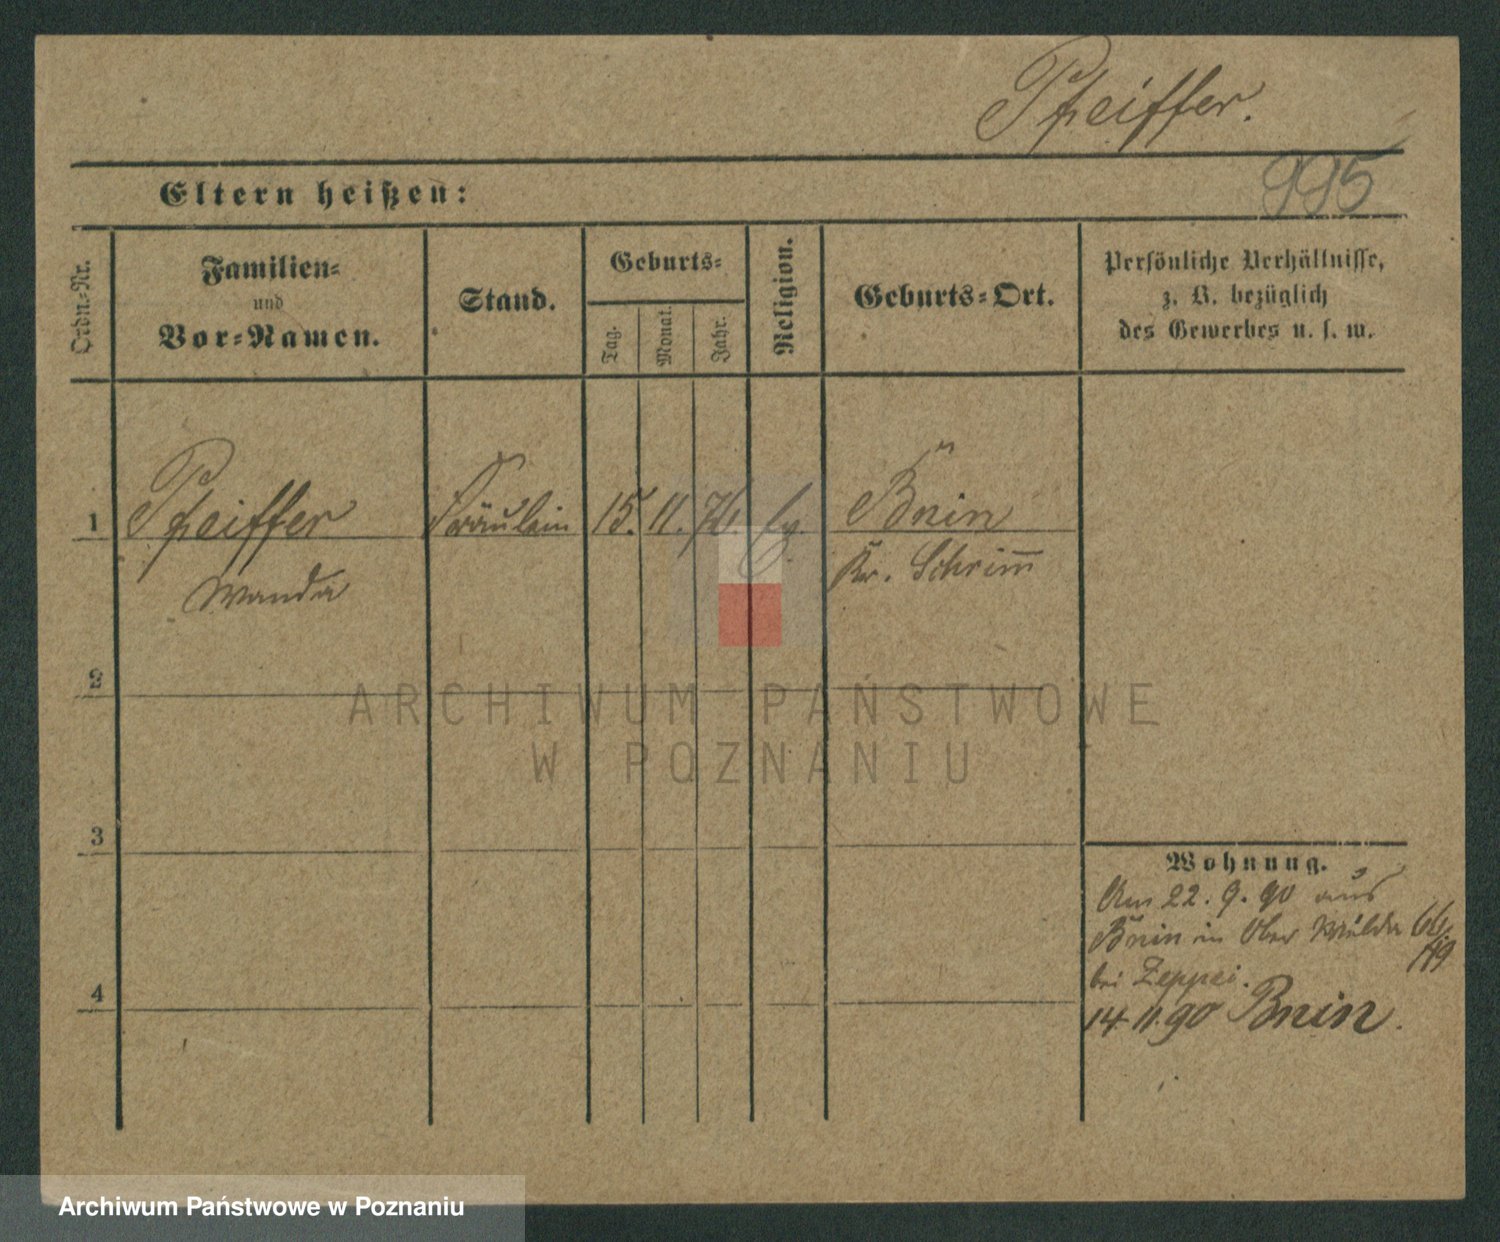 Pfeiffer.
995
Eltern heißen:
Ordn.-Nr.
Familien-
und
Vor-Namen.
Stand.
Geburts-
Tag.
Monat.
Jahr.
Religion.
Geburts-Ort.
Persönliche Verhältnisse,
z. B. bezüglich
des Gewerbes u. s. w.
1 Pfeiffer Fräulein 15. 11. 76. Bnin
Wanda Kr. Schrimm
2
3
4
Wohnung.
Am 22. 9. 90 aus
Bnin in Ober Wilda
bei
14 11. 90 Bnin.
ARCHIWUM PAŃSTWOWE
W POZNANIU
Archiwum Państwowe w Poznaniu